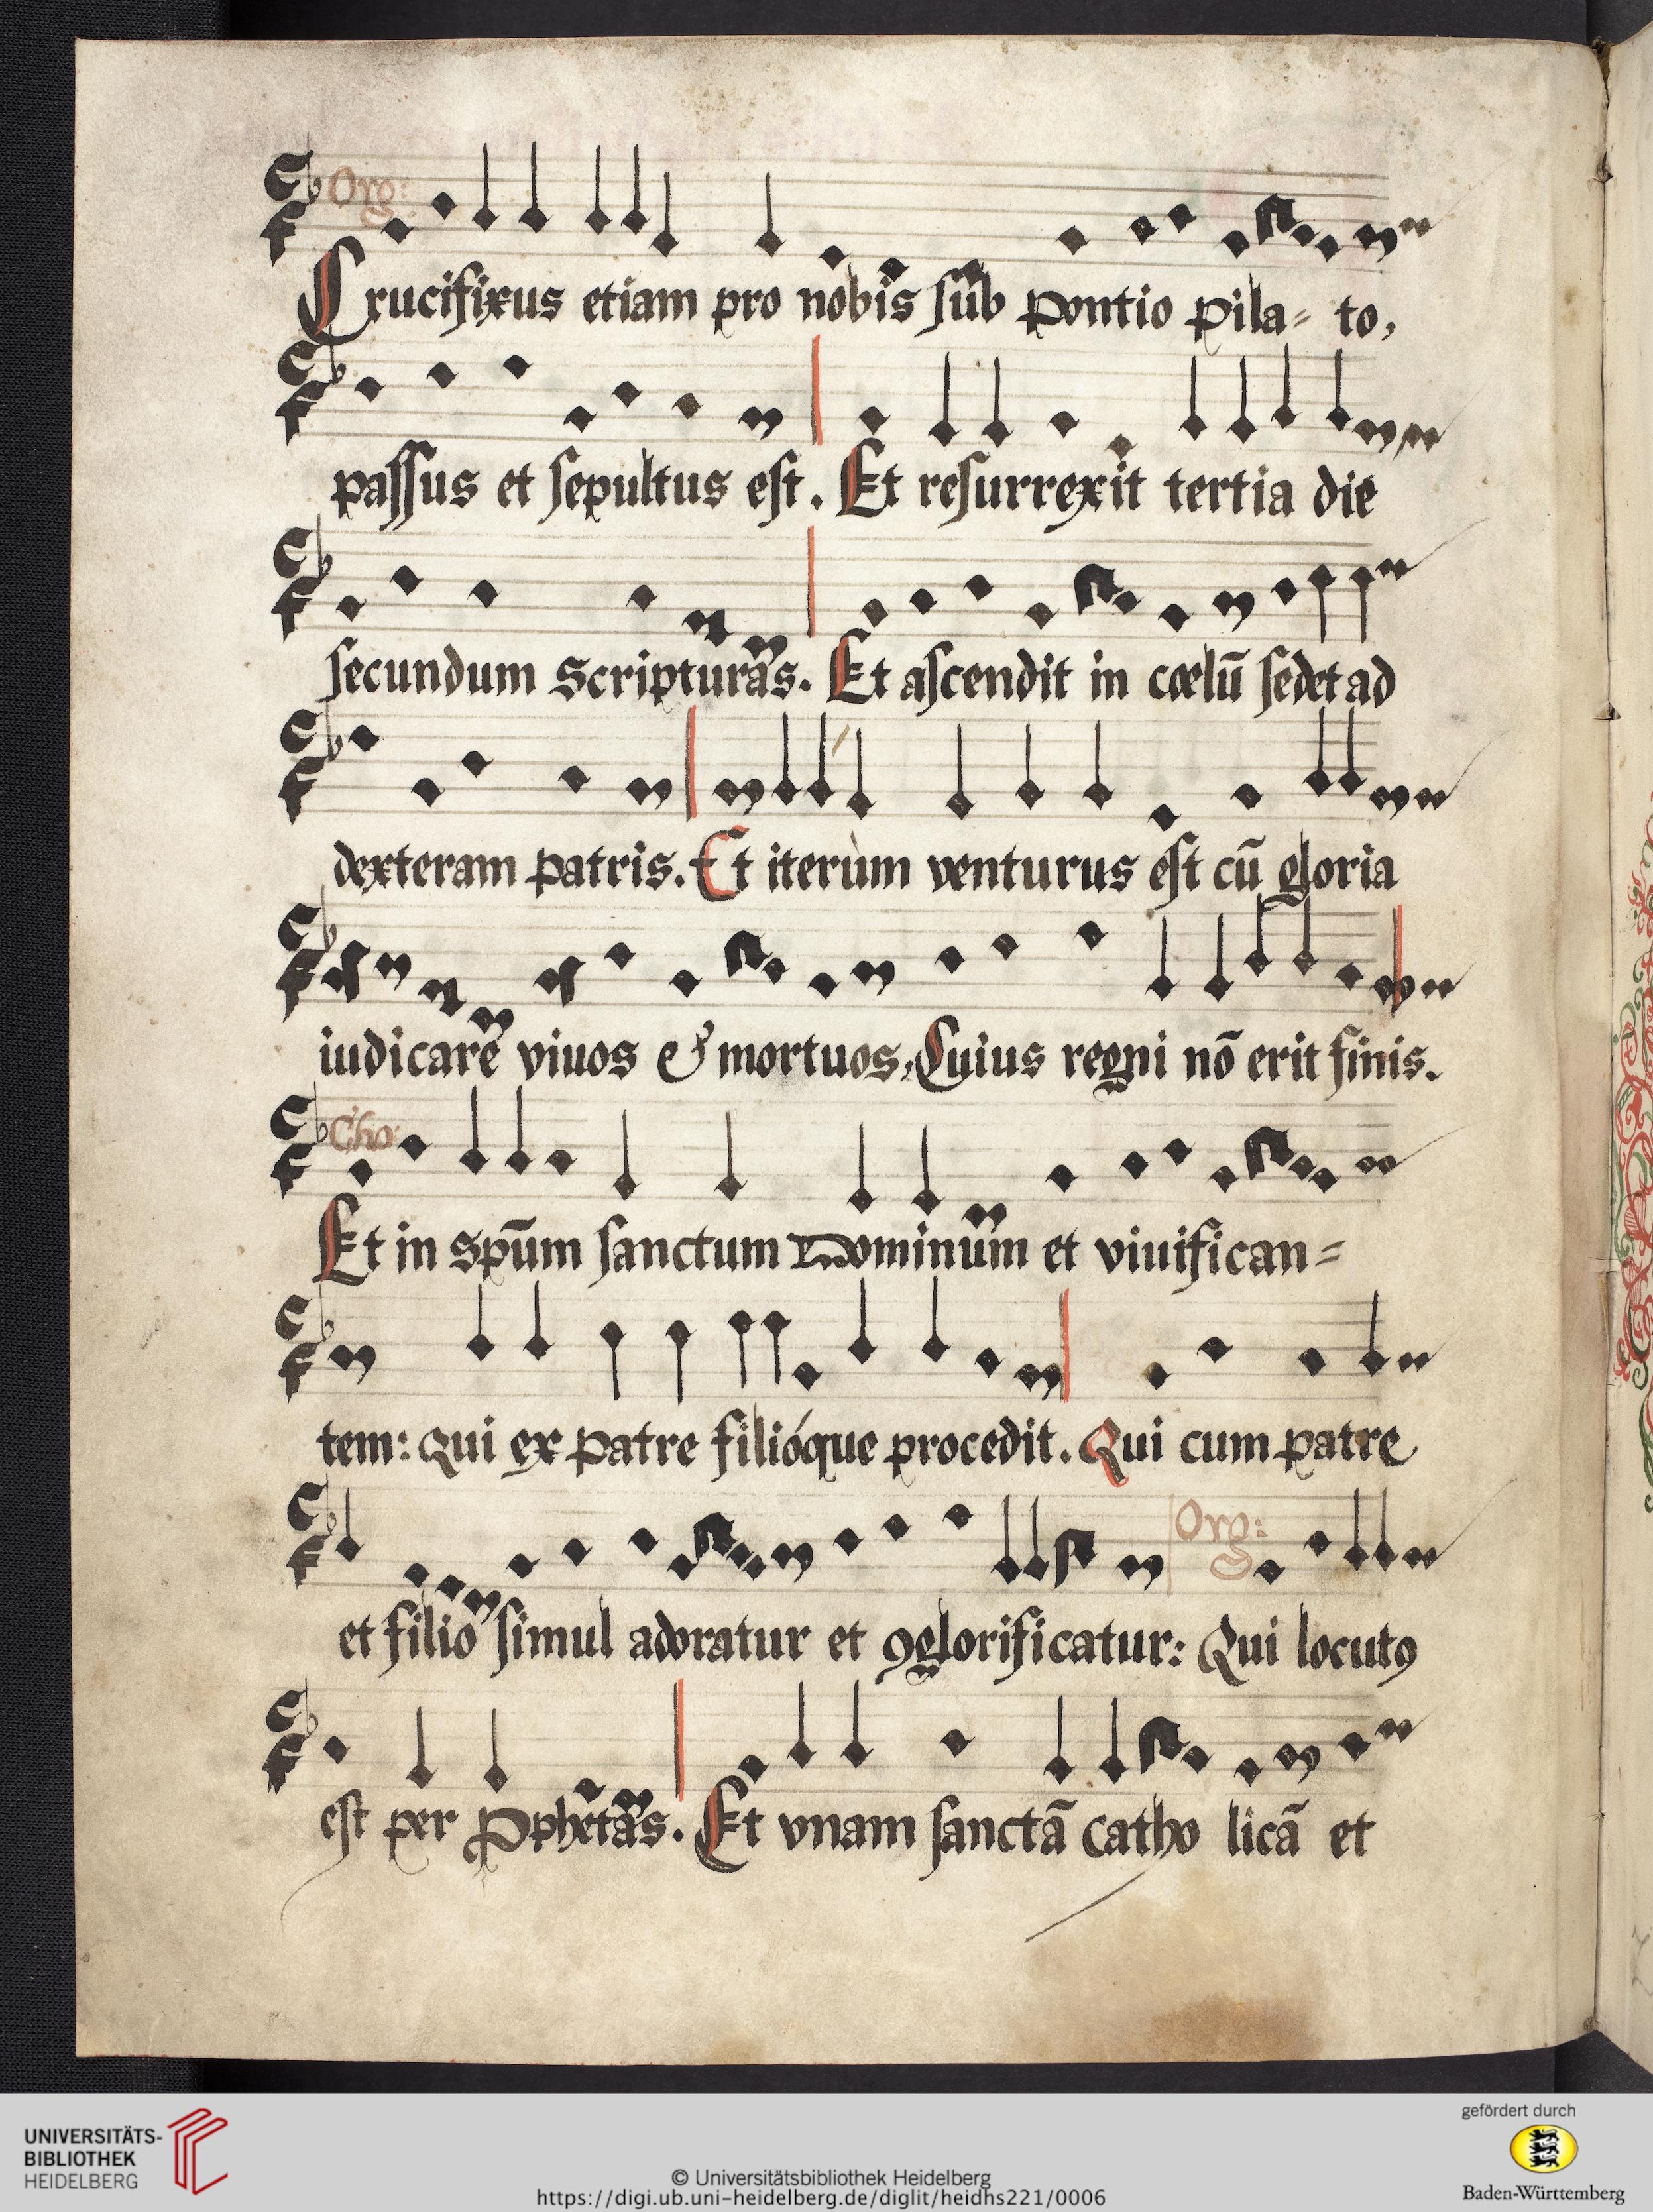 Org:
Crucifixus etiam pro nobis sub Pontio Pila= to,
passus et sepultus est. Et resurrexit tertia die
secundum Scripturas. Et ascendit in cœlū sedet ad
dexteram Patris. Et iterùm venturus est cū gloria
iudicare viuos & mortuos, Cuius regni nō erit finis.
Cho:
Et in Spūm sanctum Dominum et viuifican=
tem: Qui ex Patre filióque procedit. Qui cum patre
Org:
et filio simul adoratur et ꝯglorificatur: Qui locutꝯ
est per Pphētas. Et vnam sanctā Catho licā et
UNIVERSITÄTS-
BIBLIOTHEK
HEIDELBERG
© Universitätsbibliothek Heidelberg
https://digi.ub.uni-heidelberg.de/diglit/heidhs221/0006
gefördert durch
Baden-Württemberg